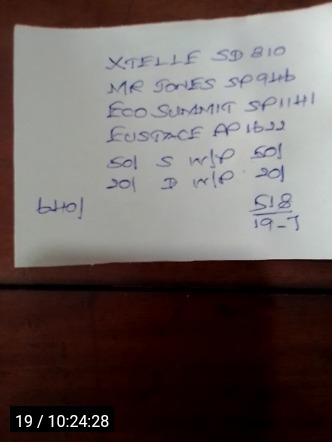 XTELLE SD 810
MR JONES SP946
ECO SUMMIT SP1141
EUSTACE AP1622
50/ S W/P 50/
20/ D W/P 20/
518
19-J
19 / 10:24:28